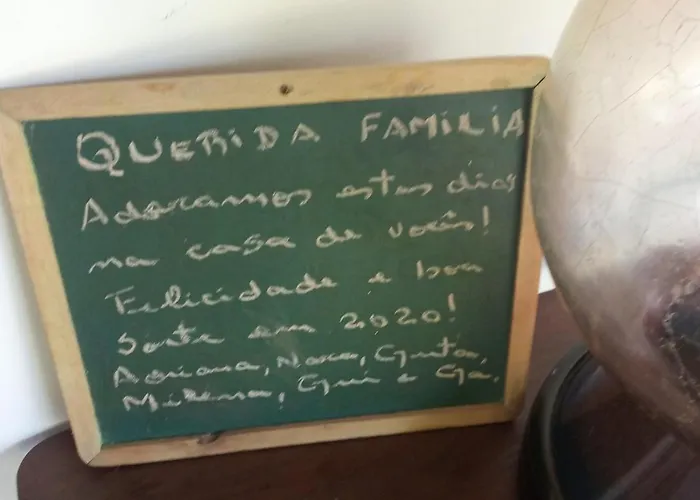 QUERIDA FAMILIA
Adoramos estes dias
na casa de vocês!
Felicidade e boa
Sorte em 2020!
Adriana, Nara, Guto,
Milena, Gui e Ga.